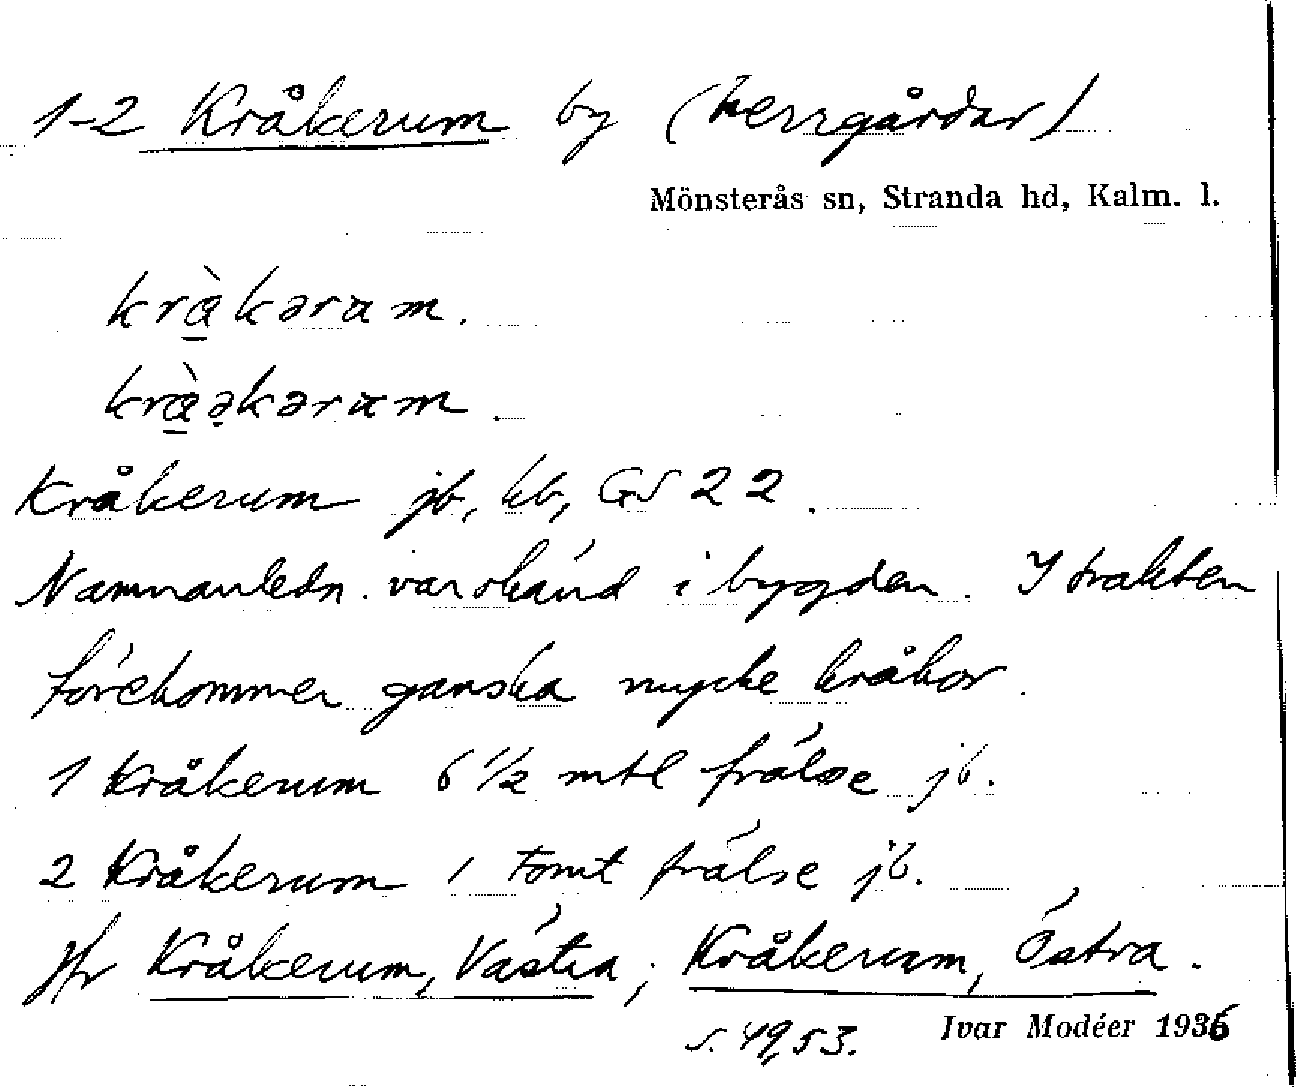 1-2 Kråkerum by (herrgårdar)
Mönsterås sn, Stranda hd, Kalm. l.
krὰkəram.
krὰəkəram.
Kråkerum jb, kb, GS 22.
Namnanledn. var okänd i bygden. I trakten
förekommer ganska mycke kråkor.
1 Kråkerum 6 1/2 mtl frälse jb.
2 Kråkerum 1 tomt frälse jb.
Jfr Kråkerum, Västra; Kråkerum, Östra.
Ivar Modéer 1936
s. 49, 53.